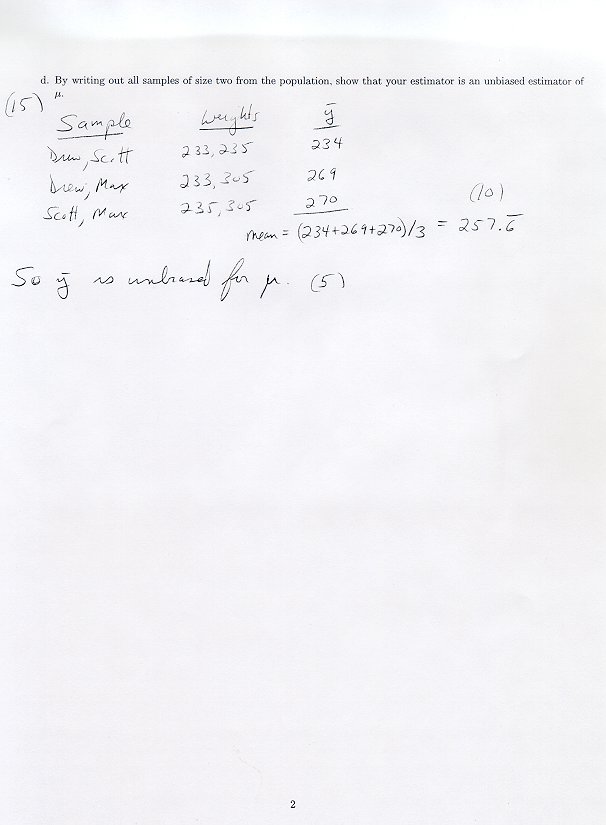 d. By writing out all samples of size two from the population, show that your estimator is an unbiased estimator of
μ.
(15)
Sample Weights ȳ
Drew, Scott 233, 235 234
Drew, Max 233, 305 269
Scott, Max 235, 305 270
mean = (234+269+270)/3 = 257.6̅ (10)
So ȳ is unbiased for μ. (5)
2